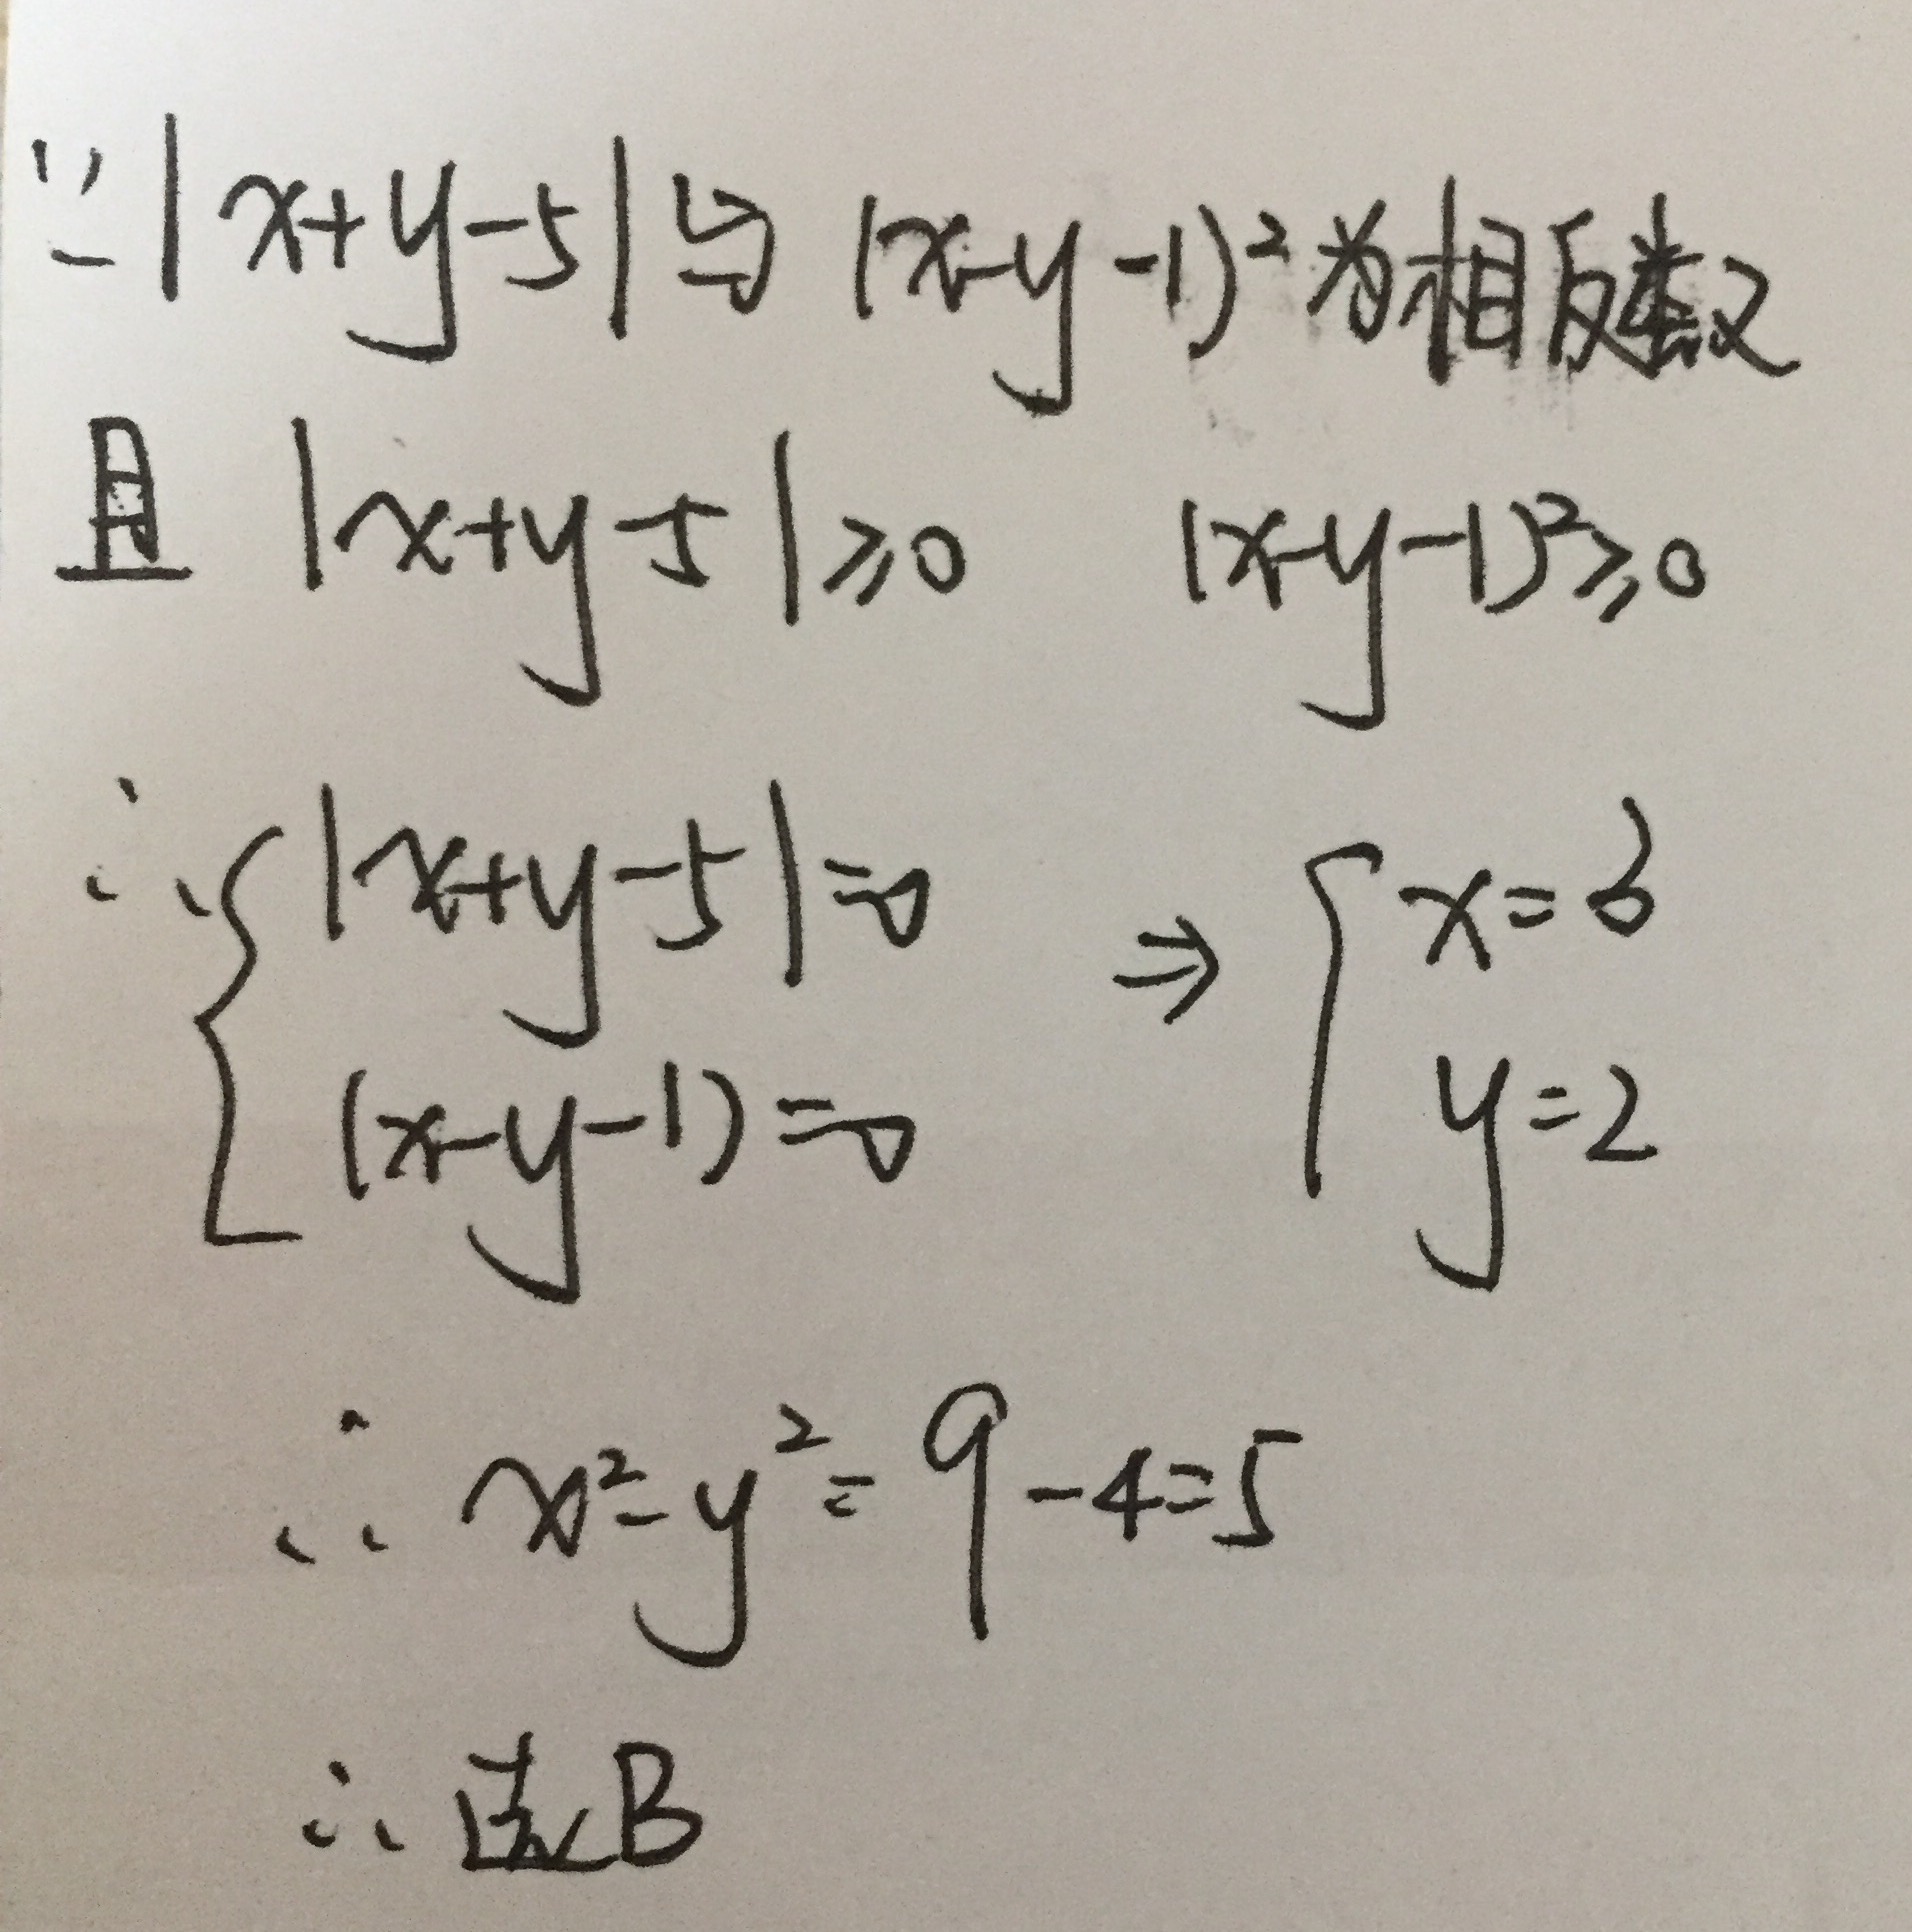 ∵|x+y-5|与(x-y-1)²为相反数
且 |x+y-5|≥0 (x-y-1)²≥0
∴{|x+y-5|=0 ⇒ {x=3
(x-y-1)=0 y=2
∴ x²-y²=9-4=5
∴ 选B